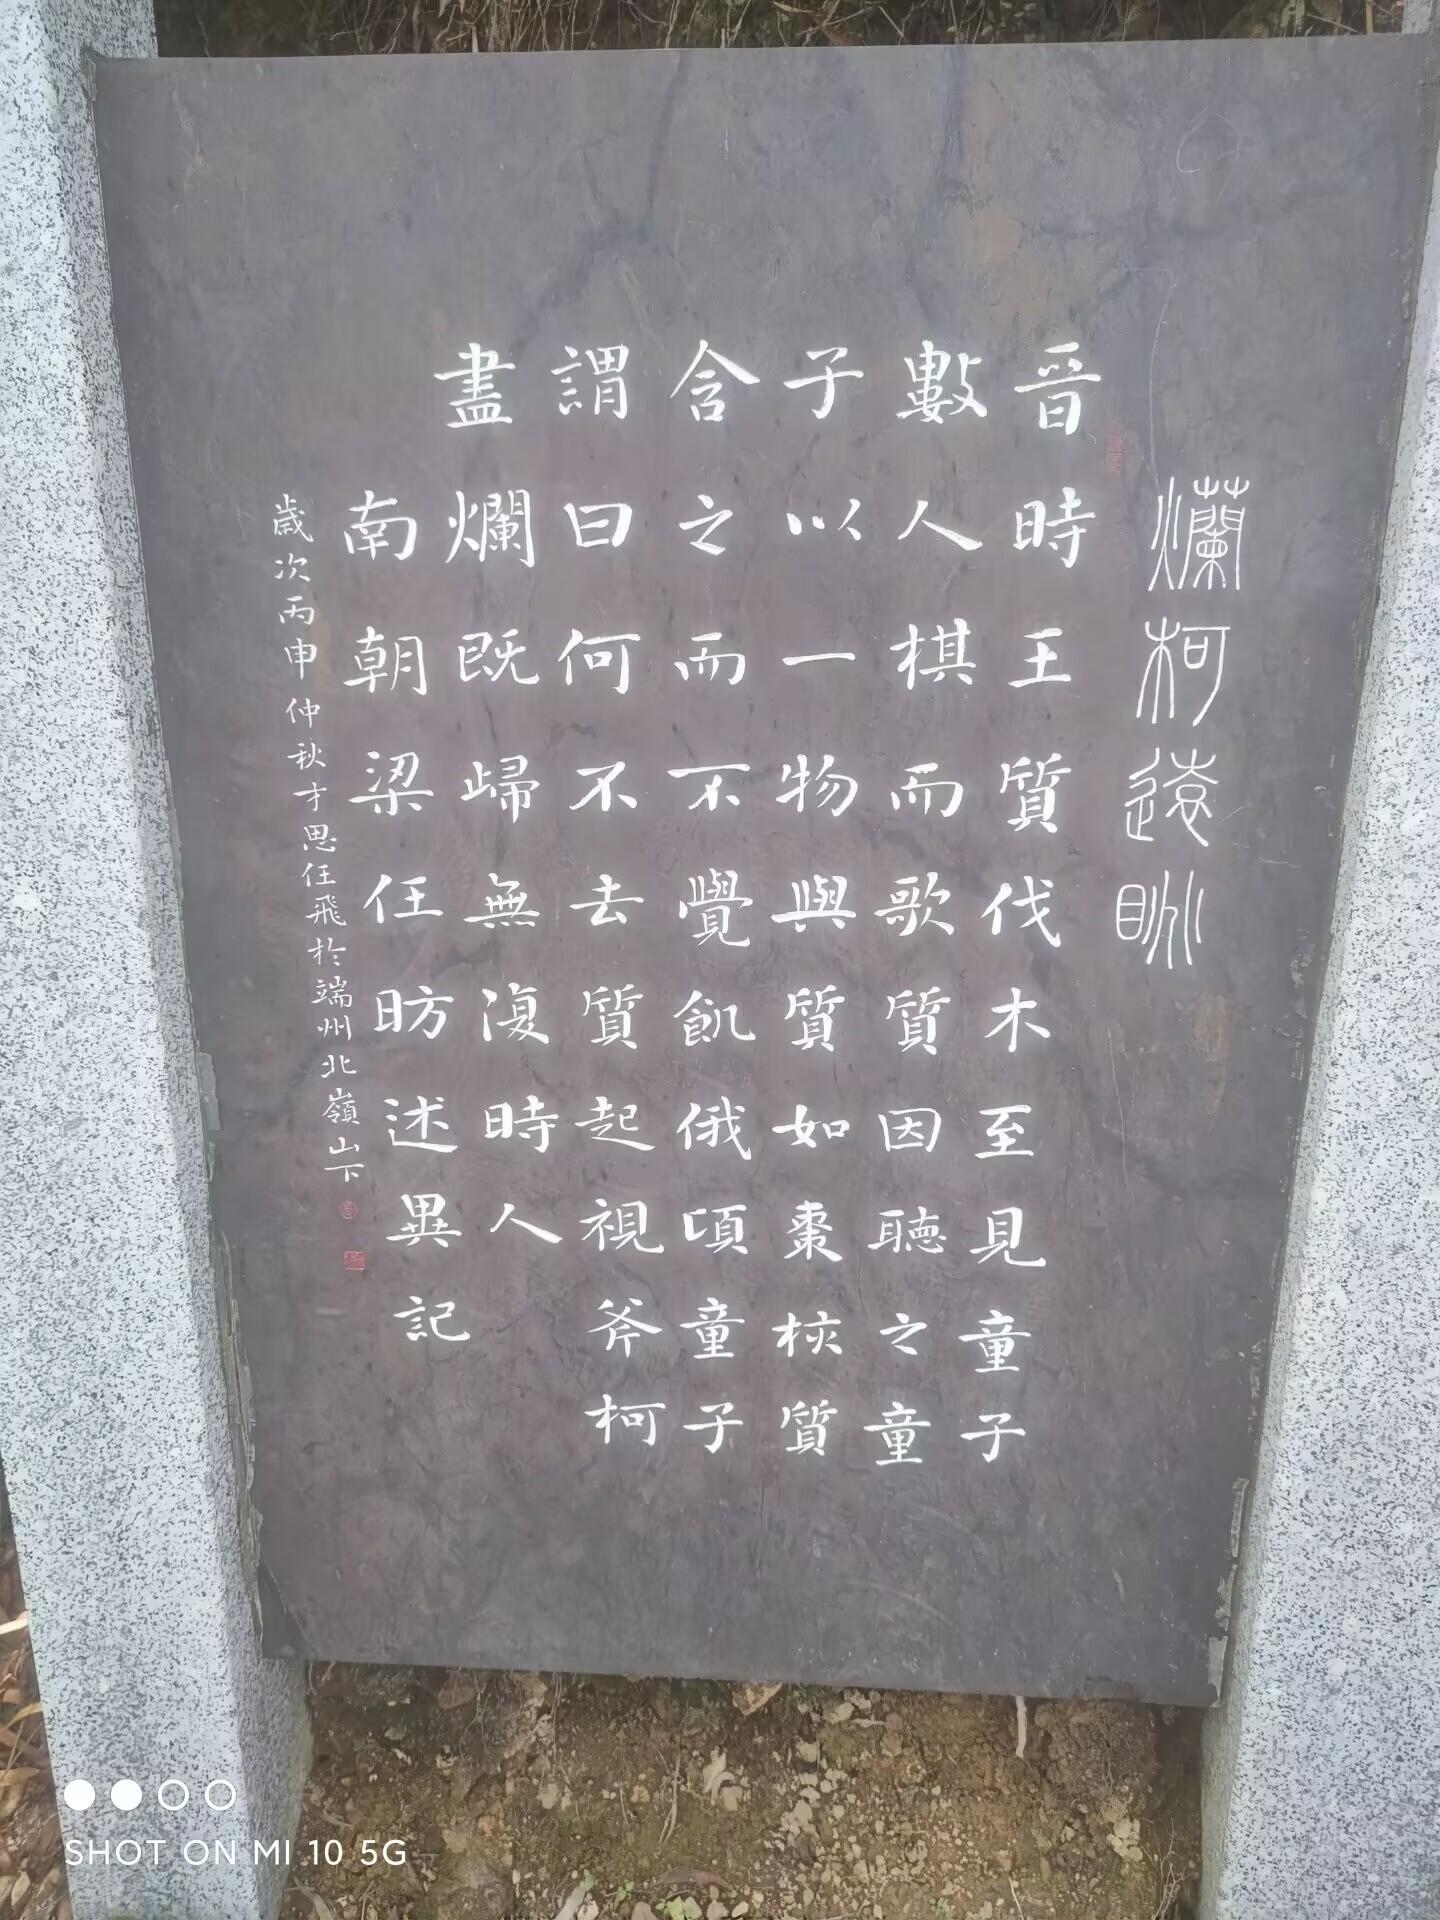 爛柯遠眺
晉時王質伐木至見童子
數人棋而歌質因聽之童
子以一物與質如棗核質
含之而不覺飢俄頃童子
謂曰何不去質起視斧柯
盡爛既歸無復時人
南朝梁任昉述異記
歲次丙申仲秋才思任飛於端州北嶺山下
SHOT ON MI 10 5G